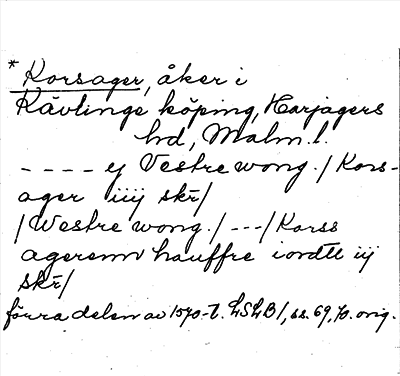 * Korsager, åker i
Kävlinge köping, Harjagers
hd, Malm. l.
- - - - ej Vestre wong. / Kors-
ager iiij skr̄ /
/ Westre wong. / --- / Korss
agerenn hauffre i ordtt iij
skr̄ /
förra delen av 1570-t. LSLB I, ss. 69, 70. orig.